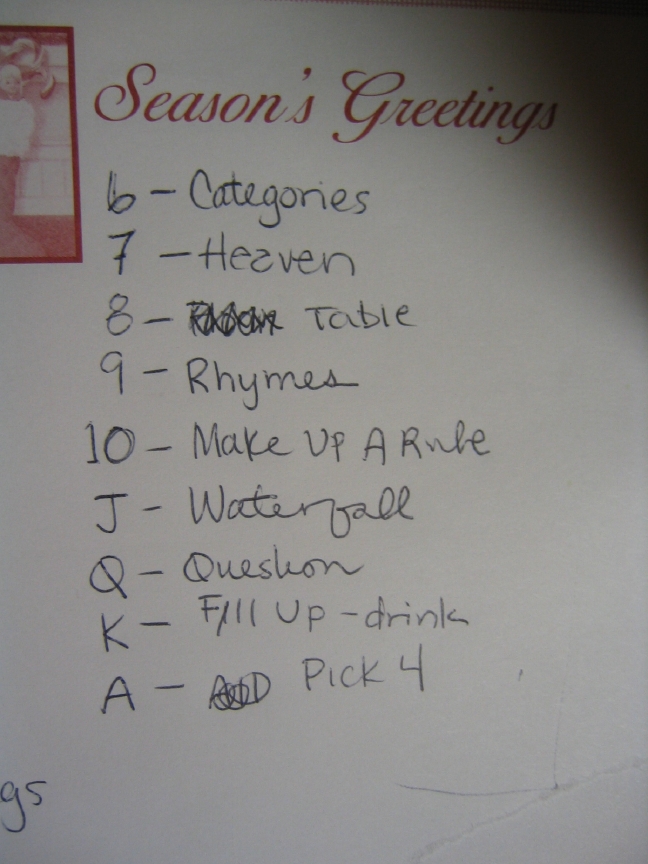 Season's Greetings
6 - Categories
7 - Heaven
8 - Table
9 - Rhymes
10 - Make Up A Rule
J - Waterfall
Q - Question
K - Fill Up - drink
A - Pick 4
gs